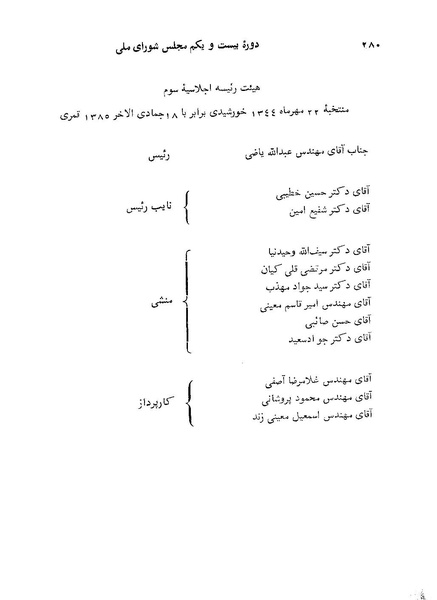 ۲۸۰ دورهٔ بیست و یکم مجلس شورای ملی
هیئت رئیسه اجلاسیهٔ سوم
منتخبهٔ ۲۲ مهرماه ۱۳۴۴ خورشیدی برابر با ۱۸ جمادی الاخر ۱۳۸۵ قمری
جناب آقای مهندس عبدالله یاضی رئیس
آقای دکتر حسین خطیبی
آقای دکتر شفیع امین
نایب رئیس
آقای دکتر سیف‌الله وحیدنیا
آقای دکتر مرتضی قلی کیان
آقای دکتر سید جواد مهذب
آقای مهندس امیر قاسم معینی
آقای حسن صائبی
آقای دکتر جوادسعید
منشی
آقای مهندس غلامرضا آصفی
آقای مهندس محمود پروشانی
آقای مهندس اسمعیل معینی زند
کارپرداز